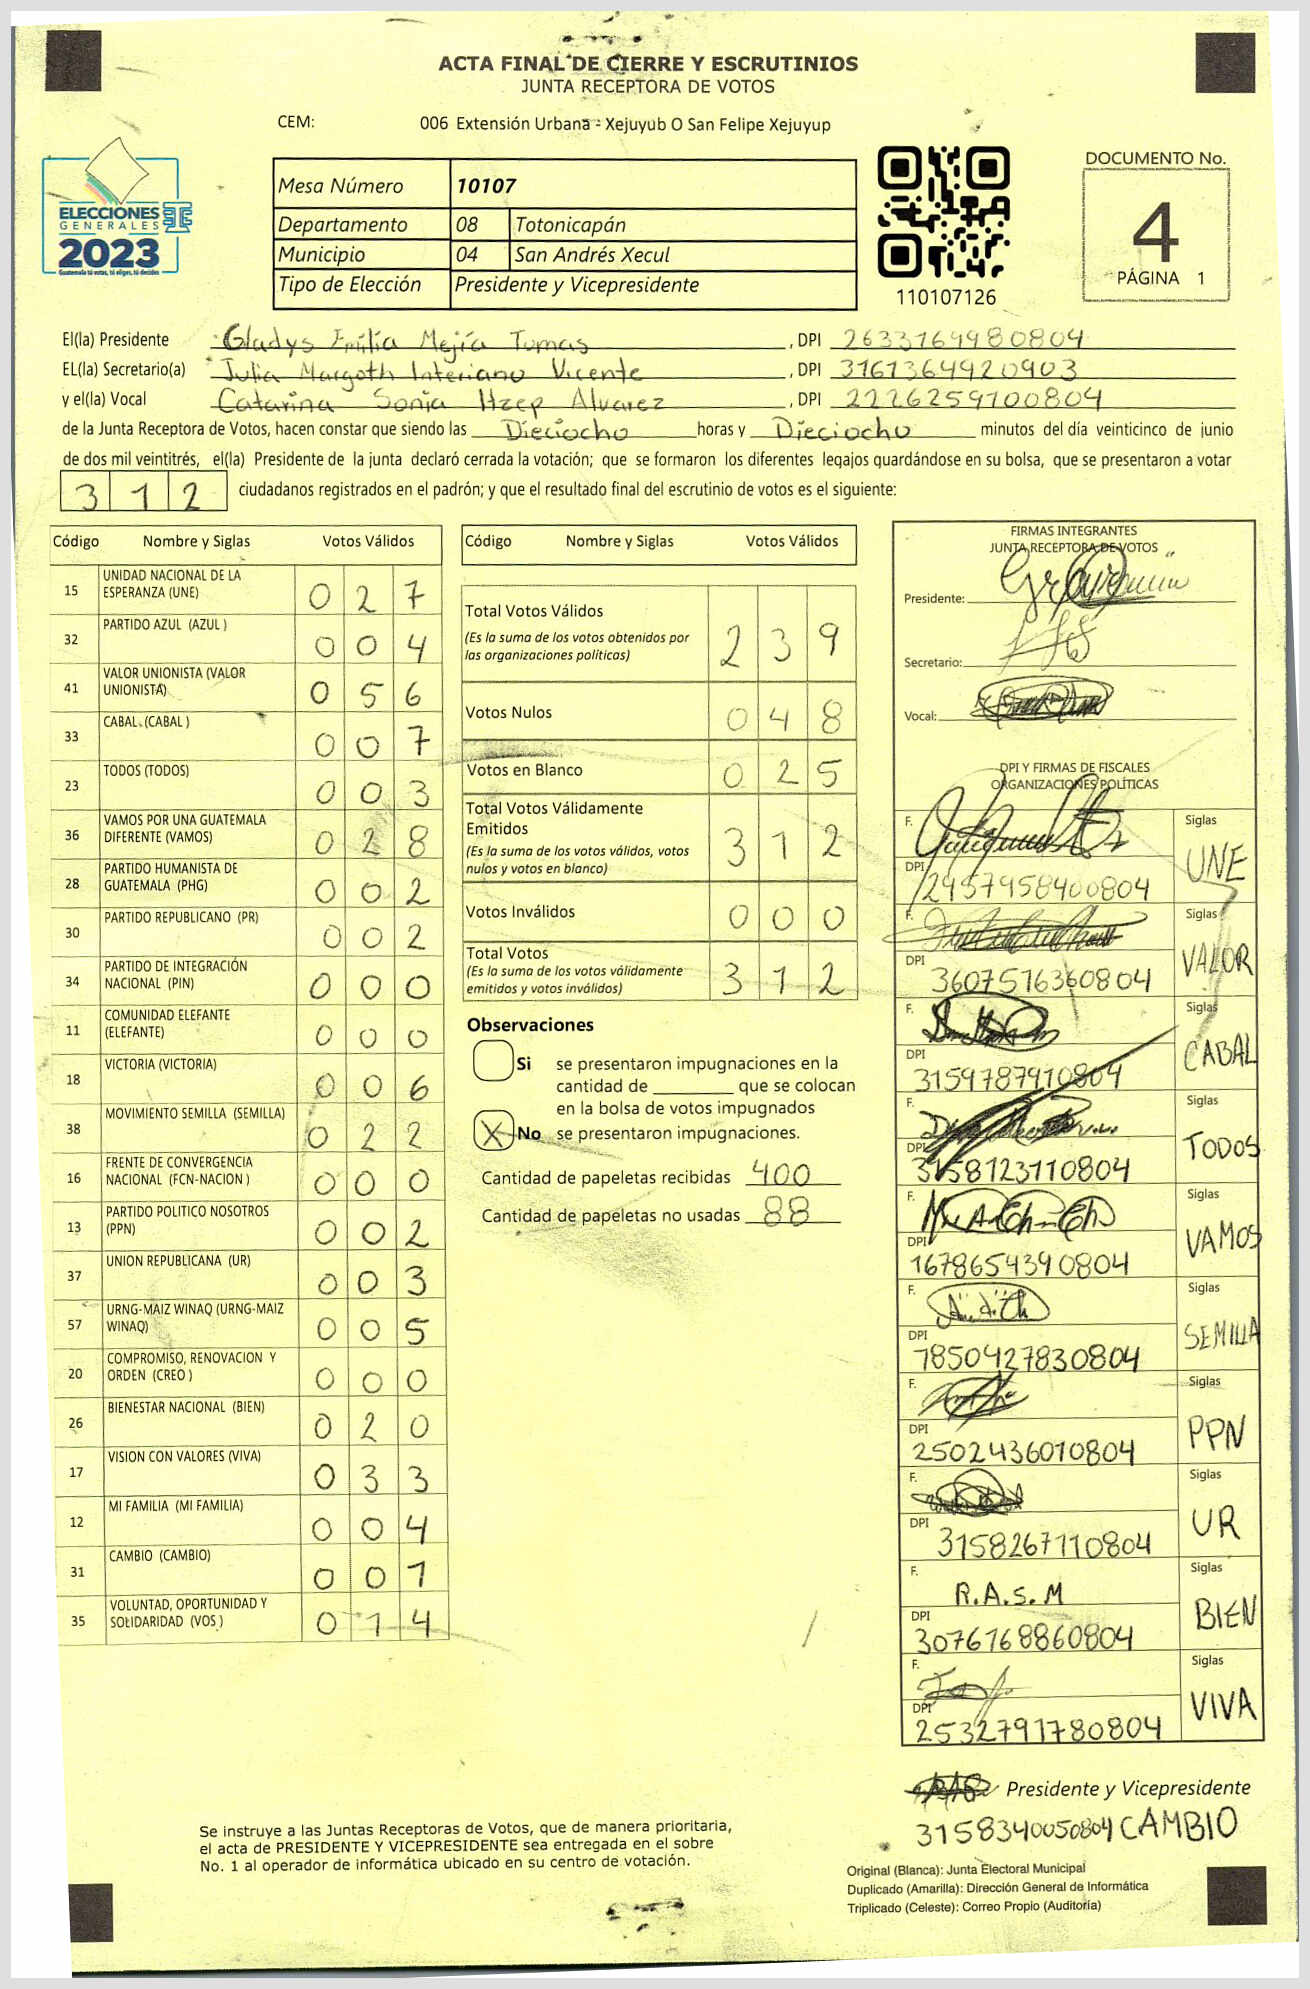 ACTA FINAL DE CIERRE Y ESCRUTINIOS
JUNTA RECEPTORA DE VOTOS
CEM: 006 Extensión Urbana - Xejuyub O San Felipe Xejuyup
ELECCIONES
GENERALES
2023
Guatemala tú votas, tú eliges, tú decides
Mesa Número 10107
Departamento 08 Totonicapán
Municipio 04 San Andrés Xecul
Tipo de Elección Presidente y Vicepresidente
110107126
DOCUMENTO No.
4
PÁGINA 1
El(la) Presidente Gladys Emilia Mejía Tumas, DPI 2633164980804
EL(la) Secretario(a) Julia Margoth Interiano Vicente, DPI 3161364920903
y el(la) Vocal Catarina Sonia Itzep Alvarez, DPI 2226259700804
de la Junta Receptora de Votos, hacen constar que siendo las Dieciocho horas y Dieciocho minutos del día veinticinco de junio
de dos mil veintitrés, el(la) Presidente de la junta declaró cerrada la votación; que se formaron los diferentes legajos guardándose en su bolsa, que se presentaron a votar
312 ciudadanos registrados en el padrón; y que el resultado final del escrutinio de votos es el siguiente:
Código Nombre y Siglas Votos Válidos
15 UNIDAD NACIONAL DE LA ESPERANZA (UNE) 0 2 7
32 PARTIDO AZUL (AZUL ) 0 0 4
41 VALOR UNIONISTA (VALOR UNIONISTA) 0 5 6
33 CABAL (CABAL ) 0 0 7
23 TODOS (TODOS) 0 0 3
36 VAMOS POR UNA GUATEMALA DIFERENTE (VAMOS) 0 2 8
28 PARTIDO HUMANISTA DE GUATEMALA (PHG) 0 0 2
30 PARTIDO REPUBLICANO (PR) 0 0 2
34 PARTIDO DE INTEGRACIÓN NACIONAL (PIN) 0 0 0
11 COMUNIDAD ELEFANTE (ELEFANTE) 0 0 0
18 VICTORIA (VICTORIA) 0 0 6
38 MOVIMIENTO SEMILLA (SEMILLA) 0 2 2
16 FRENTE DE CONVERGENCIA NACIONAL (FCN-NACION ) 0 0 0
13 PARTIDO POLITICO NOSOTROS (PPN) 0 0 2
37 UNION REPUBLICANA (UR) 0 0 3
57 URNG-MAIZ WINAQ (URNG-MAIZ WINAQ) 0 0 5
20 COMPROMISO, RENOVACION Y ORDEN (CREO ) 0 0 0
26 BIENESTAR NACIONAL (BIEN) 0 2 0
17 VISION CON VALORES (VIVA) 0 3 3
12 MI FAMILIA (MI FAMILIA) 0 0 4
31 CAMBIO (CAMBIO) 0 0 1
35 VOLUNTAD, OPORTUNIDAD Y SOLIDARIDAD (VOS ) 0 1 4
Código Nombre y Siglas Votos Válidos
Total Votos Válidos
(Es la suma de los votos obtenidos por
las organizaciones políticas) 2 3 9
Votos Nulos 0 4 8
Votos en Blanco 0 2 5
Total Votos Válidamente
Emitidos
(Es la suma de los votos válidos, votos
nulos y votos en blanco) 3 1 2
Votos Inválidos 0 0 0
Total Votos
(Es la suma de los votos válidamente
emitidos y votos inválidos) 3 1 2
Observaciones
Si se presentaron impugnaciones en la
cantidad de ________ que se colocan
en la bolsa de votos impugnados
X No se presentaron impugnaciones.
Cantidad de papeletas recibidas 400
Cantidad de papeletas no usadas 88
FIRMAS INTEGRANTES
JUNTA RECEPTORA DE VOTOS
Presidente:
Secretario:
Vocal:
DPI Y FIRMAS DE FISCALES
ORGANIZACIONES POLÍTICAS
F. Siglas
DPI 2957958400804 UNE
F. Siglas
DPI 3607516360804 VALOR
F. Siglas
DPI 3159787910804 CABAL
F. Siglas
DPI 3158123110804 TODOS
F. Siglas
DPI 1678654390804 VAMOS
F. Siglas
DPI 7850427830804 SEMILLA
F. Siglas
DPI 2502436010804 PPN
F. Siglas
DPI 3158267110804 UR
F. R.A.S.M Siglas
DPI 3076768860804 BIEN
F. Siglas
DPI 2532791780804 VIVA
Presidente y Vicepresidente
3158340050804 CAMBIO
Se instruye a las Juntas Receptoras de Votos, que de manera prioritaria,
el acta de PRESIDENTE Y VICEPRESIDENTE sea entregada en el sobre
No. 1 al operador de informática ubicado en su centro de votación.
Original (Blanca): Junta Electoral Municipal
Duplicado (Amarilla): Dirección General de Informática
Triplicado (Celeste): Correo Propio (Auditoria)